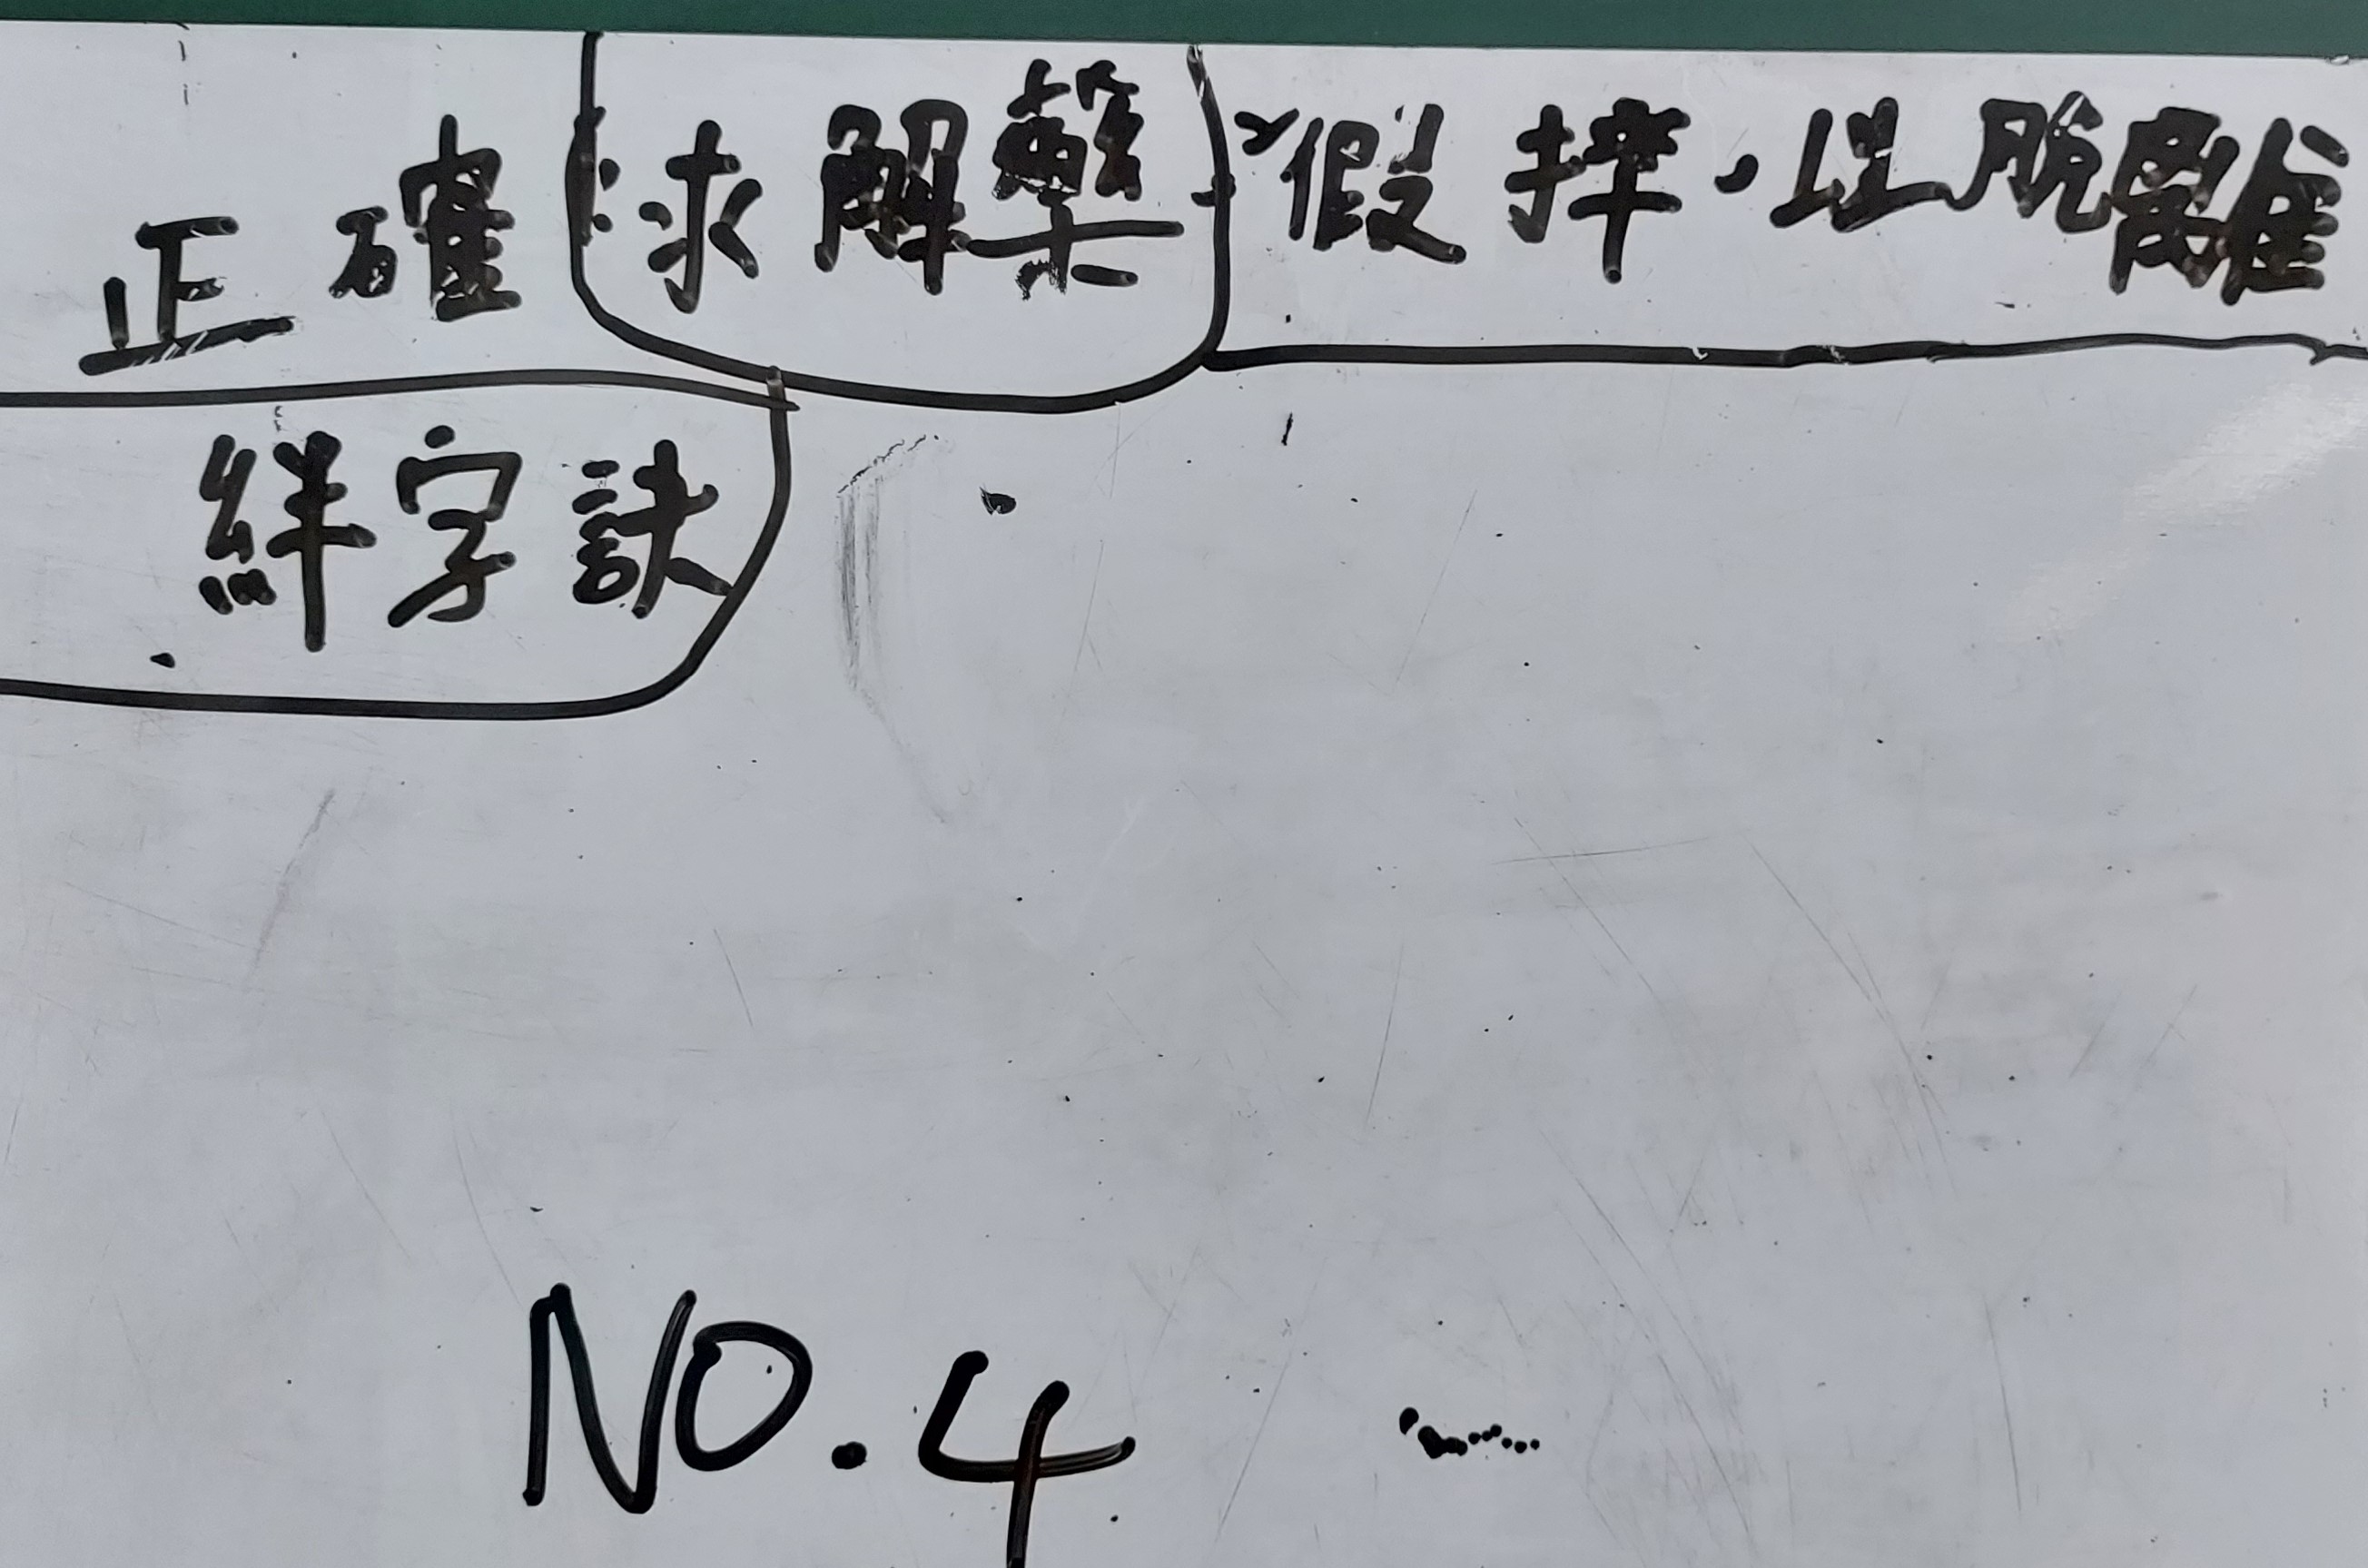 正確 求解藥 假摔，以脫離
絆字訣
NO.4